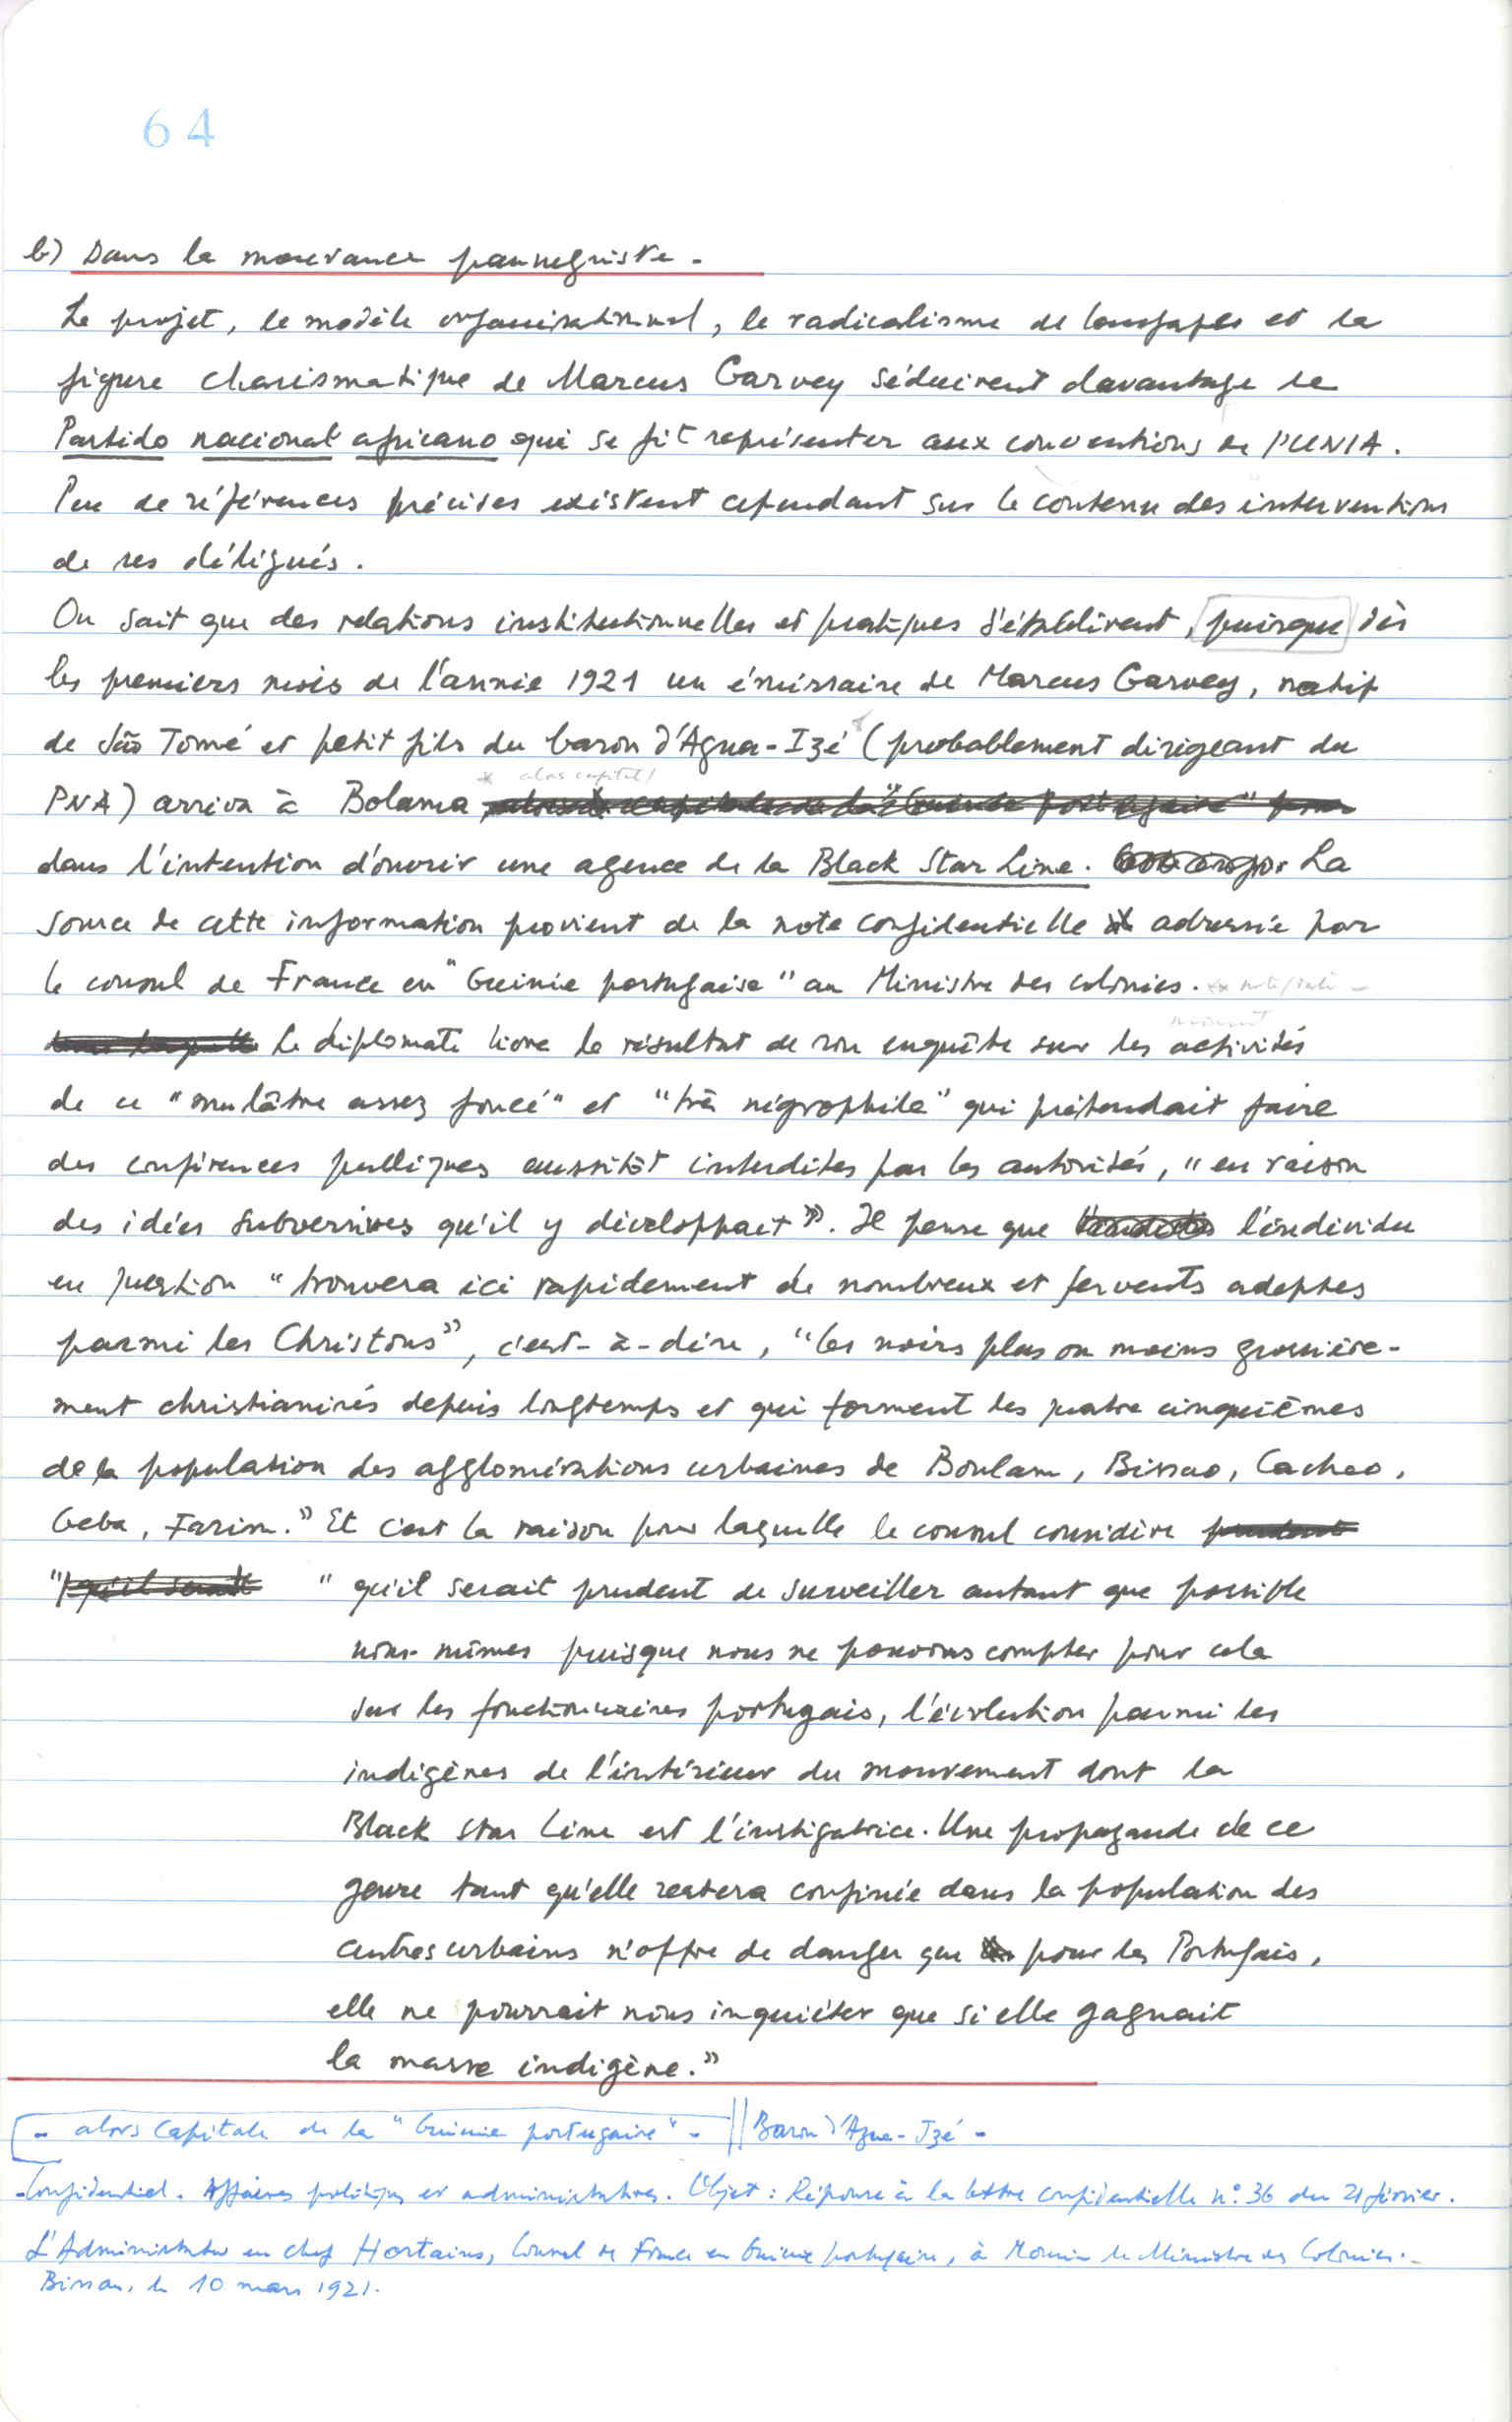 64
b) Dans la mouvance pannegriste.
Le projet, le modèle organisationnel, le radicalisme de langages et la
figure charismatique de Marcus Garvey séduirent davantage le
Partido nacional africano qui se fit représenter aux conventions de l'UNIA.
Peu de références précises existent cependant sur le contenu des interventions
de ses délégués.
On sait que des relations institutionnelles et pratiques s'établirent, puisque dès
les premiers mois de l'année 1921 un émissaire de Marcus Garvey, natif
de São Tomé et petit fils du baron d'Agua-Izé (probablement dirigeant du
* alors capitale
PNA) arriva à Bolama alors la capitale de la "Guinée Portugaise" pour
dans l'intention d'ouvrir une agence de la Black Star Line. La
source de cette information provient de la note confidentielle adressée par
le consul de France en "Guinée portugaise" au Ministre des colonies.
dans laquelle Le diplomate livre le résultat de son enquête sur les activités
de ce "mulâtre assez foncé" et "très négrophile" qui prétendait faire
des conférences publiques aussitôt interdites par les autorités, "en raison
des idées subversives qu'il y développait". Il pense que l'individu
en question "trouvera ici rapidement de nombreux et fervents adeptes
parmi les Christons", c'est-à-dire, "les noirs plus ou moins grossière-
ment christianisés depuis longtemps et qui forment les quatre cinquièmes
de la population des agglomérations urbaines de Boulam, Bissao, Cacheo,
Geba, Farim." Et c'est la raison pour laquelle le consul considère prudent
"qu'il serait "qu'il serait prudent de surveiller autant que possible
nous-mêmes puisque nous ne pouvons compter pour cela
sur les fonctionnaires portugais, l'évolution parmi les
indigènes de l'intérieur du mouvement dont la
Black Star Line est l'instigatrice. Une propagande de ce
genre tant qu'elle restera confinée dans la population des
centres urbains n'offre de danger que pour les Portugais,
elle ne pourrait nous inquiéter que si elle gagnait
la masse indigène."
- alors Capitale de la "Guinée portugaise" - || Baron d'Agua-Izé -
- Confidentiel. Affaires politiques et administratives. Objet : Réponse à la lettre confidentielle n° 36 du 21 février.
L'Administrateur en chef Hostains, Consul de France en Guinée portugaise, à Monsieur le Ministre des Colonies.-
Bissau, le 10 mars 1921.